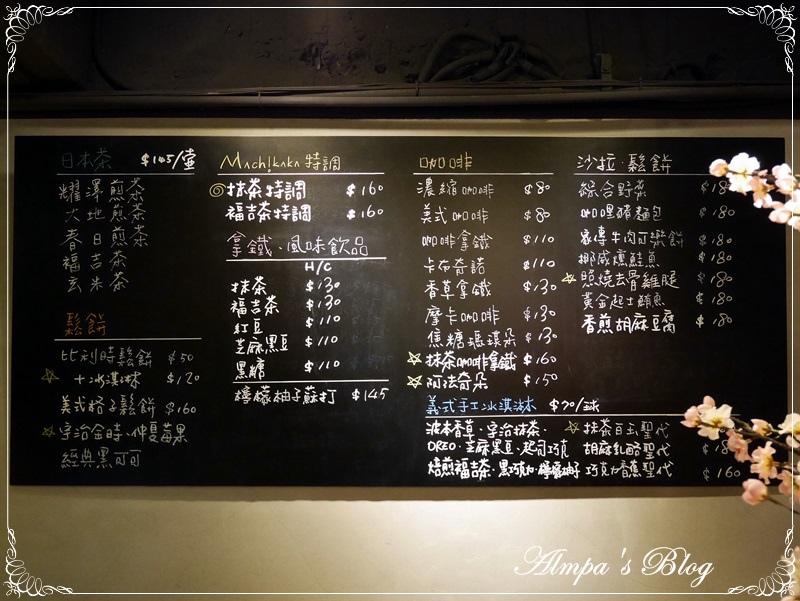 日本茶 $145/壺
耀澤煎茶
大地煎茶
春日煎茶
福吉茶
玄米茶
鬆餅
比利時鬆餅 $50
☆ +冰淇淋 $120
美式格子鬆餅 $160
☆宇治金時、仲夏莓果
經典黑可可
Machikaka 特調
抹茶特調 $160
福吉茶特調 $160
拿鐵、風味飲品
H/C
抹茶 $130
福吉茶 $130
紅豆 $110
芝麻黑豆 $110
黑糖 $110
檸檬柚子蘇打 $145
咖啡
濃縮咖啡 $80
美式咖啡 $80
咖啡拿鐵 $110
卡布奇諾 $110
香草拿鐵 $130
摩卡咖啡 $130
焦糖瑪琪朵 $130
☆抹茶咖啡拿鐵 $160
☆阿法奇朵 $150
沙拉、鬆餅
綜合野菜 $180
咖哩豬麵包 $180
牛肉可樂餅 $180
挪威燻鮭魚 $180
☆照燒去骨雞腿 $180
黃金起士鮪魚 $180
香煎胡麻豆腐 $180
義式手工冰淇淋 $70/球
波本香草、宇治抹茶、
OREO、芝麻黑豆、起司巧克
焙煎福吉茶、黑巧克力、檸檬柚子
☆ 抹茶白玉聖代
胡麻乳酪聖代
巧克力香蕉聖代 $160
Almpa's Blog